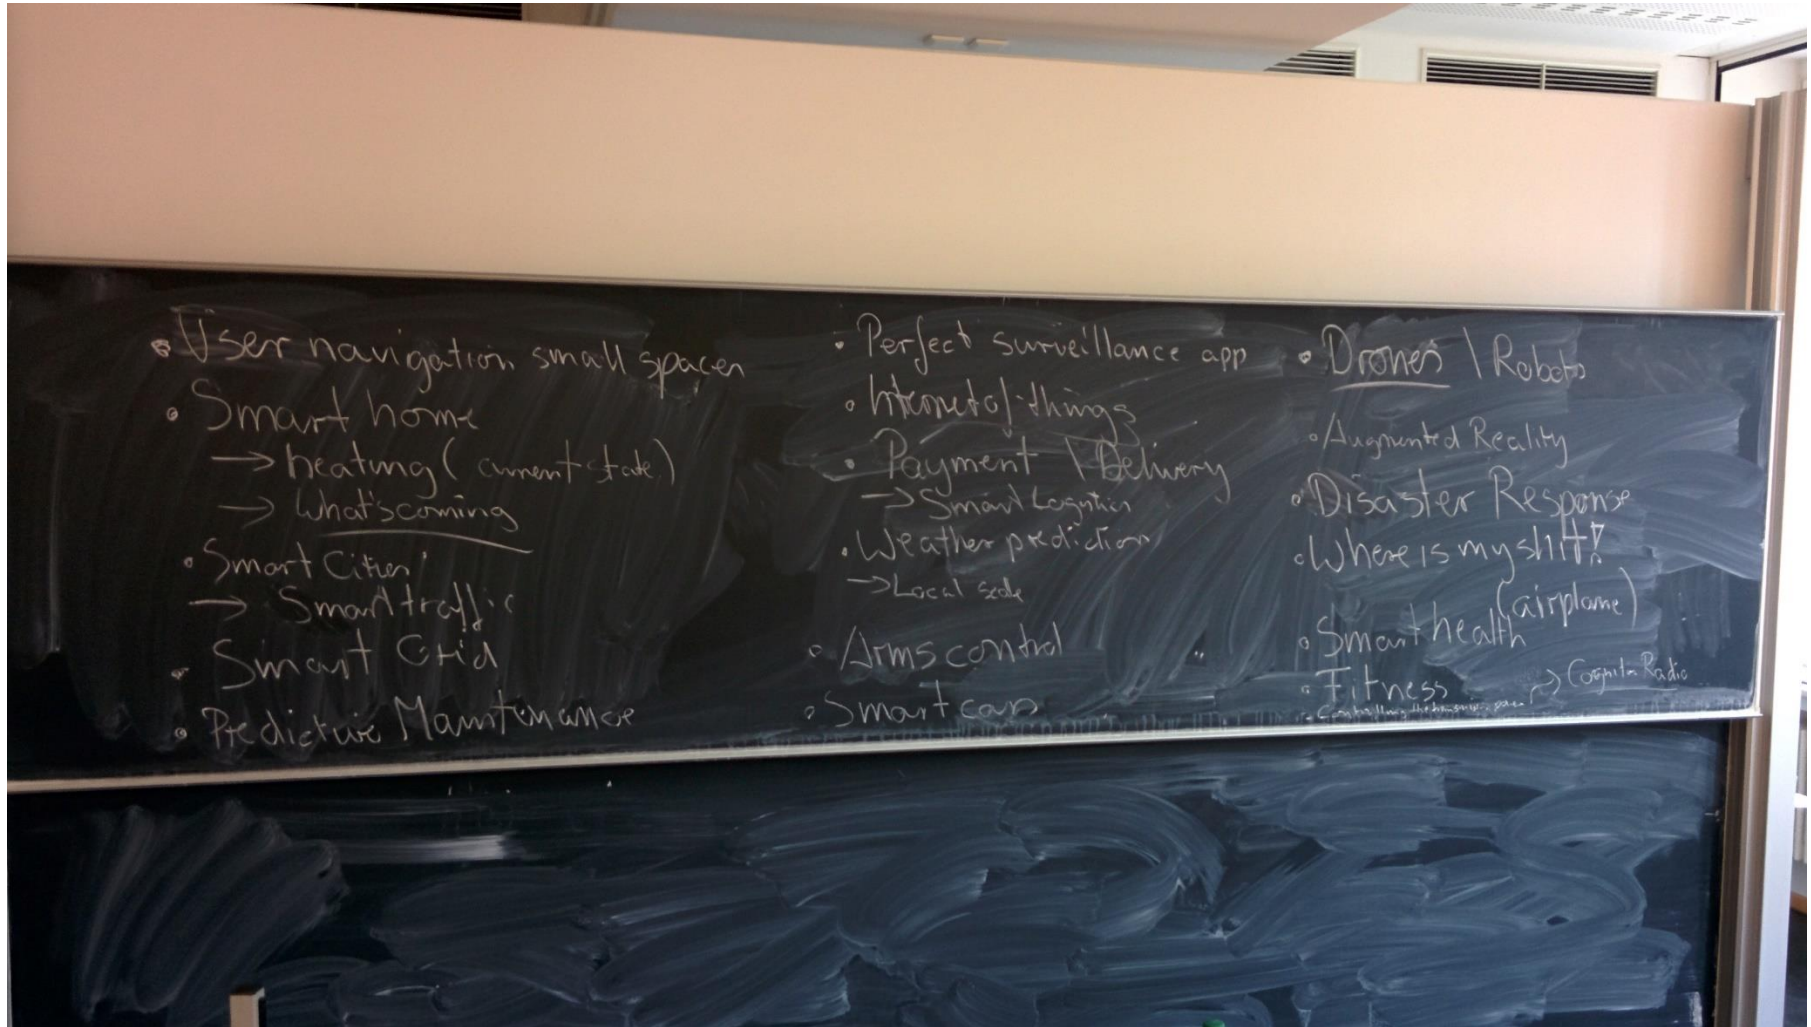 • User navigation small spaces
• Smart home
→ heating (current state)
→ What's coming
• Smart Cities
→ Smart traffic
• Smart Grid
• Predictive Maintenance
• Perfect surveillance app
• Internet of things
• Payment \ Delivery
→ Smart Logistics
• Weather prediction
→ Local scale
• Arms control
• Smart cars
• Drones \ Robots
• Augmented Reality
• Disaster Response
• Where is my shit!?
(airplane)
• Smart health
• Fitness
• Controlling the → Cognitive Radio